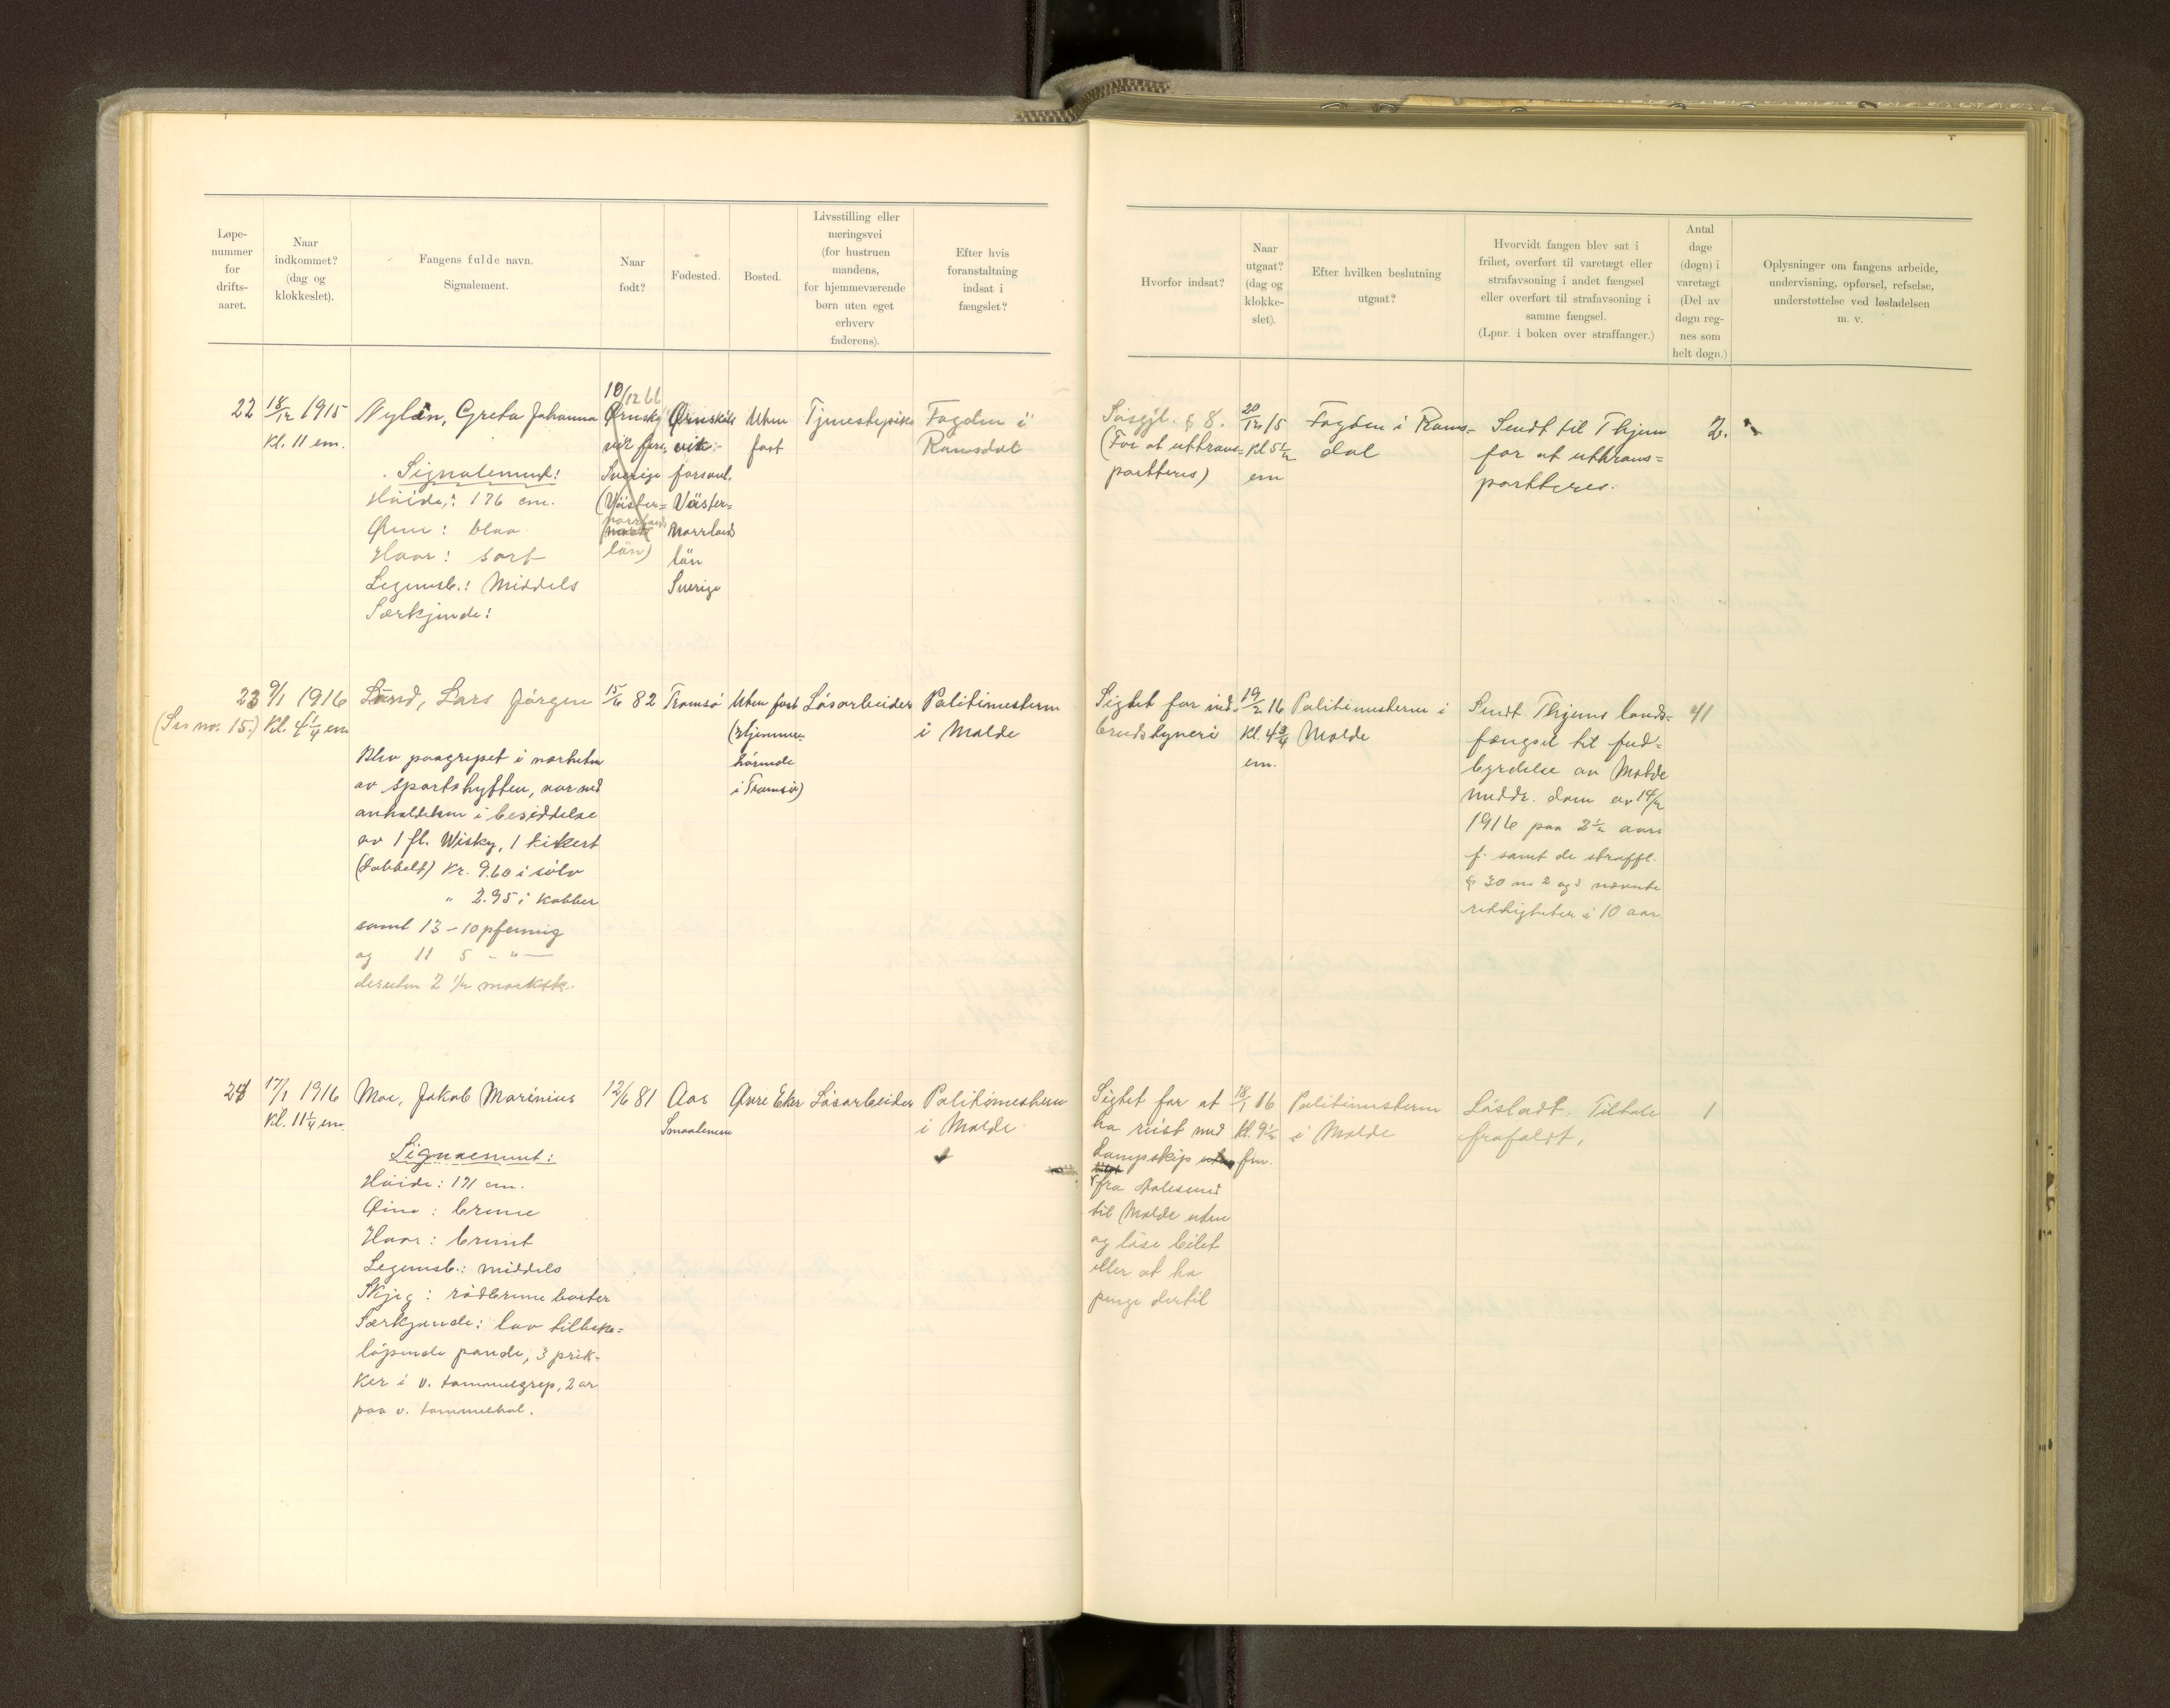 Løpe-
nummer
for
drifts-
aaret.
Naar
indkommet?
(dag og
klokkeslet).
Fangens fulde navn.
Signalement.
Naar
født?
Fødested.
Bosted.
Livsstilling eller
næringsvei
(for hustruen
mandens,
for hjemmeværende
børn uten eget
erhverv
faderens).
Efter hvis
foranstaltning
indsat i
fængslet?
Hvorfor indsat?
Naar
utgaat?
(dag og
klokke-
slet).
Efter hvilken beslutning
utgaat?
Hvorvidt fangen blev sat i
frihet, overført til varetægt eller
strafavsoning i andet fængsel
eller overført til strafavsoning i
samme fængsel.
(Lpnr. i boken over straffanger.)
Antal
dage
(døgn) i
varetægt
(Del av
døgn reg-
nes som
helt døgn.)
Oplysninger om fangens arbeide,
undervisning, opførsel, refselse,
understøttelse ved løsladelsen
m. v.
22
18/12 1915
Kl. 11 em.
Nylén, Greta Johanna
Signalement:
Höide: 176 cm.
Øine: blaa
Haar: sort
Legemsb.: Middels
Særkjende:
Ørnskjö
Sverige
(Väster=
norrlands
län)
Ørnsköls
vik
forsaml.
Väster-
norrlands
län
Sverige
Uten
fast
Fogden i
Romsdal
Løsgjl. § 8.
(For at uttrans=
portteres)
20/12 15
Kl 5 1/2
em
Fogden i Roms-
dal
Sendt til Thjem
for at uttrans=
portteres.
2.
23
(Se no. 15.)
9/1 1916
Kl. 4 1/4 em
Sund, Lars Jörgen
Blev paagrepet i nærheten
av sportshytten, var ved
anholdelsen i besiddelse
av 1 fl. Wisky, 1 kikert
(dobbelt) Kr. 9.60 i sölv
" 2.95 i kobber
samt 13 - 10 pfennig
og 11 5 - " -
desuten 2 1/2 markstk.
15/6 82
Tromsö
Uten fast
(Hjemme-
hörende
i Tromsö)
Lösarbeider
Politimesteren
i Molde
Sigtet for ind-
brudstyveri
19/2 16
Kl. 4 3/4
em.
Politimesteren i
Molde
Sendt Thjems lands-
fængsel til fuld-
byrdelse av Molde
meddr. dom av 14/2
1916 paa 2 1/2 aars
f. samt de straffl.
§ 30 no 2 og 3 nævnte
rettigheter i 10 aar
41
24
17/1 1916
Kl. 11 1/4 em.
Moe, Jakob Marinius
Signaement:
Höide: 171 cm.
Øine: brune
Haar: brunt
Legemsb.: middels
Skjeg: rödbrune barter
Særkjende: lav tilbake=
löpende pande, 3 prik-
ker i v. tommelgrep, 2 ar
paa v. tommelbal.
12/6 81
Aas
Smaalenene
Øvre Eker
Lösarbeider
Politimesteren
i Molde
Sigtet for at
ha reist med
Dampskip
fra Aalesund
til Molde uten
og löse bilet
eller at ha
penge dertil
18/1 16
Kl. 9 1/2
fm.
Politimesteren
i Molde
Löslatt. Tiltale
frafaldt.
1